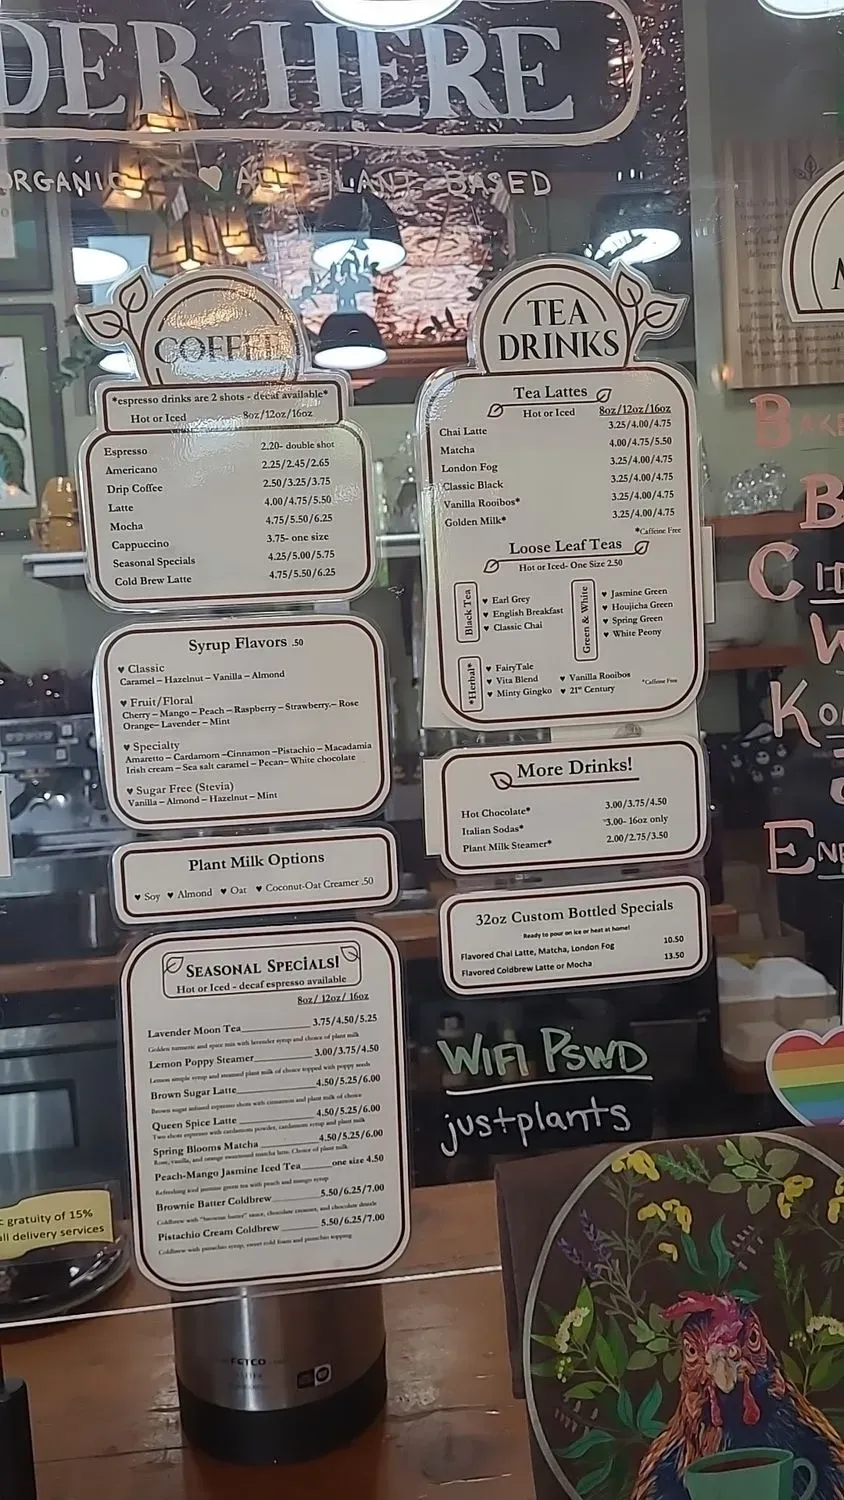 DER HERE
ORGANIC ♥ ALL PLANT BASED
COFFEE
*espresso drinks are 2 shots - decaf available*
Hot or Iced 8oz/12oz/16oz
Espresso 2.20- double shot
Americano 2.25/2.45/2.65
Drip Coffee 2.50/3.25/3.75
Latte 4.00/4.75/5.50
Mocha 4.75/5.50/6.25
Cappuccino 3.75- one size
Seasonal Specials 4.25/5.00/5.75
Cold Brew Latte 4.75/5.50/6.25
Syrup Flavors .50
♥ Classic
Caramel – Hazelnut – Vanilla – Almond
♥ Fruit/Floral
Cherry – Mango – Peach – Raspberry – Strawberry – Rose
Orange– Lavender – Mint
♥ Specialty
Amaretto – Cardamom –Cinnamon –Pistachio – Macadamia
Irish cream – Sea salt caramel – Pecan– White chocolate
♥ Sugar Free (Stevia)
Vanilla – Almond – Hazelnut – Mint
Plant Milk Options
♥ Soy ♥ Almond ♥ Oat ♥ Coconut-Oat Creamer .50
SEASONAL SPECIALS!
Hot or Iced - decaf espresso available
8oz/ 12oz/ 16oz
Lavender Moon Tea 3.75/4.50/5.25
Golden turmeric and spice mix with lavender syrup and choice of plant milk
Lemon Poppy Steamer 3.00/3.75/4.50
Lemon simple syrup and steamed plant milk of choice topped with poppy seeds
Brown Sugar Latte 4.50/5.25/6.00
Brown sugar infused espresso shots with cinnamon and plant milk of choice
Queen Spice Latte 4.50/5.25/6.00
Two shots espresso with cardamom powder, cardamom syrup and plant milk
Spring Blooms Matcha 4.50/5.25/6.00
Rose, vanilla, and orange sweetened matcha latte. Choice of plant milk
Peach-Mango Jasmine Iced Tea one size 4.50
Refreshing iced jasmine green tea with peach and mango syrup
Brownie Batter Coldbrew 5.50/6.25/7.00
Coldbrew with "brownie batter" sauce, chocolate creamer, and chocolate drizzle
Pistachio Cream Coldbrew 5.50/6.25/7.00
Coldbrew with pistachio syrup, sweet cold foam and pistachio topping
TEA
DRINKS
Tea Lattes
Hot or Iced 8oz/12oz/16oz
Chai Latte 3.25/4.00/4.75
Matcha 4.00/4.75/5.50
London Fog 3.25/4.00/4.75
Classic Black 3.25/4.00/4.75
Vanilla Rooibos* 3.25/4.00/4.75
Golden Milk* 3.25/4.00/4.75
*Caffeine Free
Loose Leaf Teas
Hot or Iced- One Size 2.50
Black Tea
♥ Earl Grey
♥ English Breakfast
♥ Classic Chai
Green & White
♥ Jasmine Green
♥ Houjicha Green
♥ Spring Green
♥ White Peony
*Herbal*
♥ FairyTale
♥ Vita Blend
♥ Minty Gingko
♥ Vanilla Rooibos
♥ 21st Century
*Caffeine Free
More Drinks!
Hot Chocolate* 3.00/3.75/4.50
Italian Sodas* 3.00- 16oz only
Plant Milk Steamer* 2.00/2.75/3.50
32oz Custom Bottled Specials
Ready to pour on ice or heat at home!
Flavored Chai Latte, Matcha, London Fog 10.50
Flavored Coldbrew Latte or Mocha 13.50
WIFI PSWD
justplants
c gratuity of 15%
all delivery services
FETCO